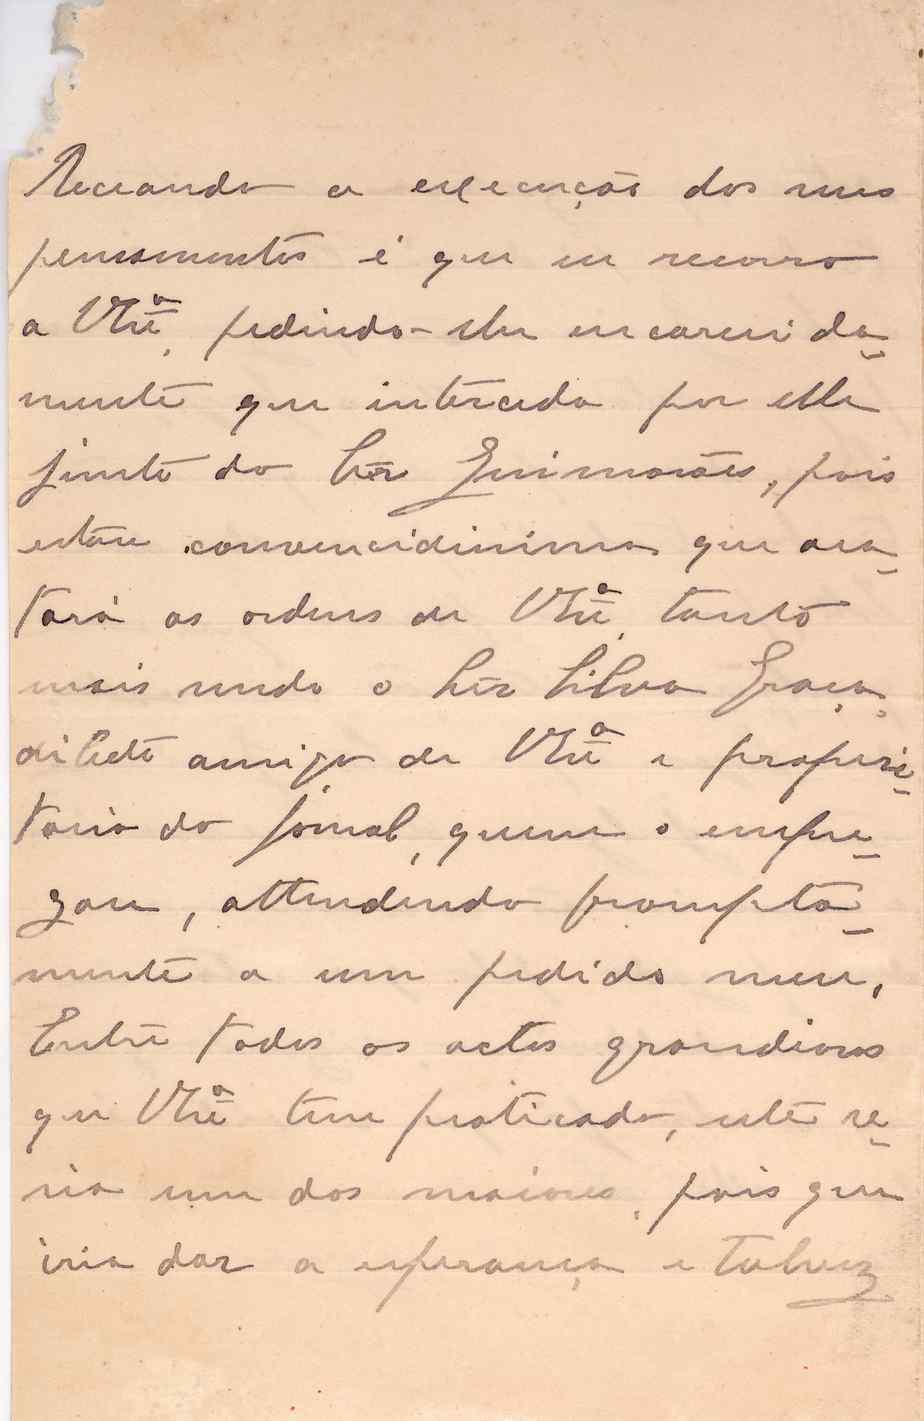 Receando a execução dos meus
pensamentos é que eu recorro
a V Exª, pedindo-lhe encarecida-
mente que interceda por elle
junto do Snr Guimarães, pois
estou convencidissima que aca-
tará as ordens de V Exª tanto
mais sendo o Snr Silva Graça,
dilecto amigo de V Exª e propri-
tario do Jornal, quem o empre-
gou, attendendo prompta-
mente a um pedido meu.
Entre todos os actos grandiosos
que V Exª tem praticado, este se-
ria um dos maiores, pois que
iria dar a esperança e talvez